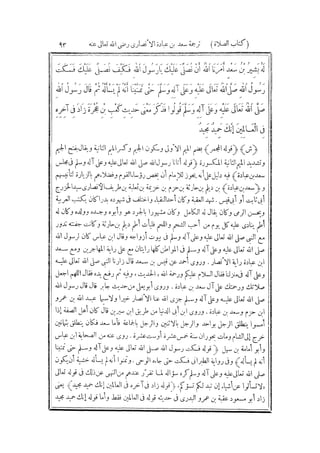 (كتاب الصلاة) ترجمة سعد بن عبادة الأنصارى رضى الله تعالى عنه ٩٣
له بشير بن سعد أمرنا الله أن نصلى عليك يارسول الله فكيف نصلى عليك فسكت
رسول الله صلى الله تعالى عليه وعلى آله وسلم حتى تمنينا أنه لم يسأله ثم قال رسول الله
صلى الله تعالى عليه وعلى آله وسلم قولوا فذكر معنى حديث كعب بن عجرة زاد فى آخره
فى العالمين إنك حميد مجيد
(ش) (قوله المجمر) بضم الميم الأولى وسكون الجيم وكسر الميم الثانية ويقال بفتح الجيم
وتشديد الميم الثانية المكسورة (قوله أتانا رسول الله صلى الله تعالى عليه وعلى آله وسلم فى مجلس
سعد بن عبادة) فيه دليل على أنه يجوز للإمام أن يخص رؤساء القوم وفضلاءهم بالزيارة تأنيسا لهم
و(سعد بن عبادة) بن دليم بن حارثة بن حزام بن خزيمة بن ثعلبة بن طريف الأنصارى سيد الخزرج
أبى ثابت أو أبى قيس. شهد العقبة وكان أحد النقباء واختلف فى شهوده بدرا كان يكتب العربية
ويحسن الرمى وكان يقال له الكامل وكان مشهورا بالجود هو وأبوه وجده وولده وكان له
أطم ينادى عليه كل يوم من أحب الشحم واللحم فليأت أطم دليم بن حارثة وكانت جفنته تدور
مع النبى صلى الله تعالى عليه وعلى آله وسلم فى بيوت أزواجه وقال ابن عباس كان لرسول الله
صلى الله تعالى عليه وعلى آله وسلم فى المواطن كلها رايتان مع على راية المهاجرين ومع سعد
ابن عبادة راية الأنصار. وروى أحمد عن قيس بن سعد قال زارنا النبى صلى الله تعالى عليه
وعلى آله وسلم فى منزلنا فقال السلام عليكم ورحمة الله ، الحديث ، وفيه ثم رفع يده فقال اللهم اجعل
صلاتك ورحمتك على آل سعد بن عبادة . وروى أبو يعلى من حديث جابر قال قال رسول الله
صلى الله تعالى عليه وعلى آله وسلم جزى الله عنا الأنصار خيرا ولاسيما عبد الله بن عمرو
ابن حزم وسعد بن عبادة. وروى ابن أبى الدنيا من طريق ابن سيرين قال كان أهل الصفة إذا
أمسوا ينطلق الرجل بواحد والرجل بالاثنين والرجل بالجماعة فأما سعد فكان ينطلق بثمانين
خرج إلى الشام ومات بحوران سنة خمس عشرة أو ست عشرة . روى عنه من الصحابة ابن عباس
وأبو أمامة بن سهل (قوله فسكت رسول الله صلى الله تعالى عليه وعلى آله وسلم حتى تمنينا
أنه لم يسأله) وفى رواية الطبرانى فسكت حتى جاءه الوحى. وتمنوا أنه لم يسأله خشية أن يكون
النبى صلى الله تعالى عليه وعلى آله وسلم كره سؤاله لما تقرر عندهم من النهى عن ذلك فى قوله تعالى
«لاتسألوا عن أشياء إن تبد لكم تسؤكم» (قوله زاد فى آخره فى العالمين إنك حميد مجيد) يعنى
زاد أبو مسعود عقبة بن عمرو البدرى فى حديثه قوله فى العالمين فقط وأما قوله إنك حميد مجيد